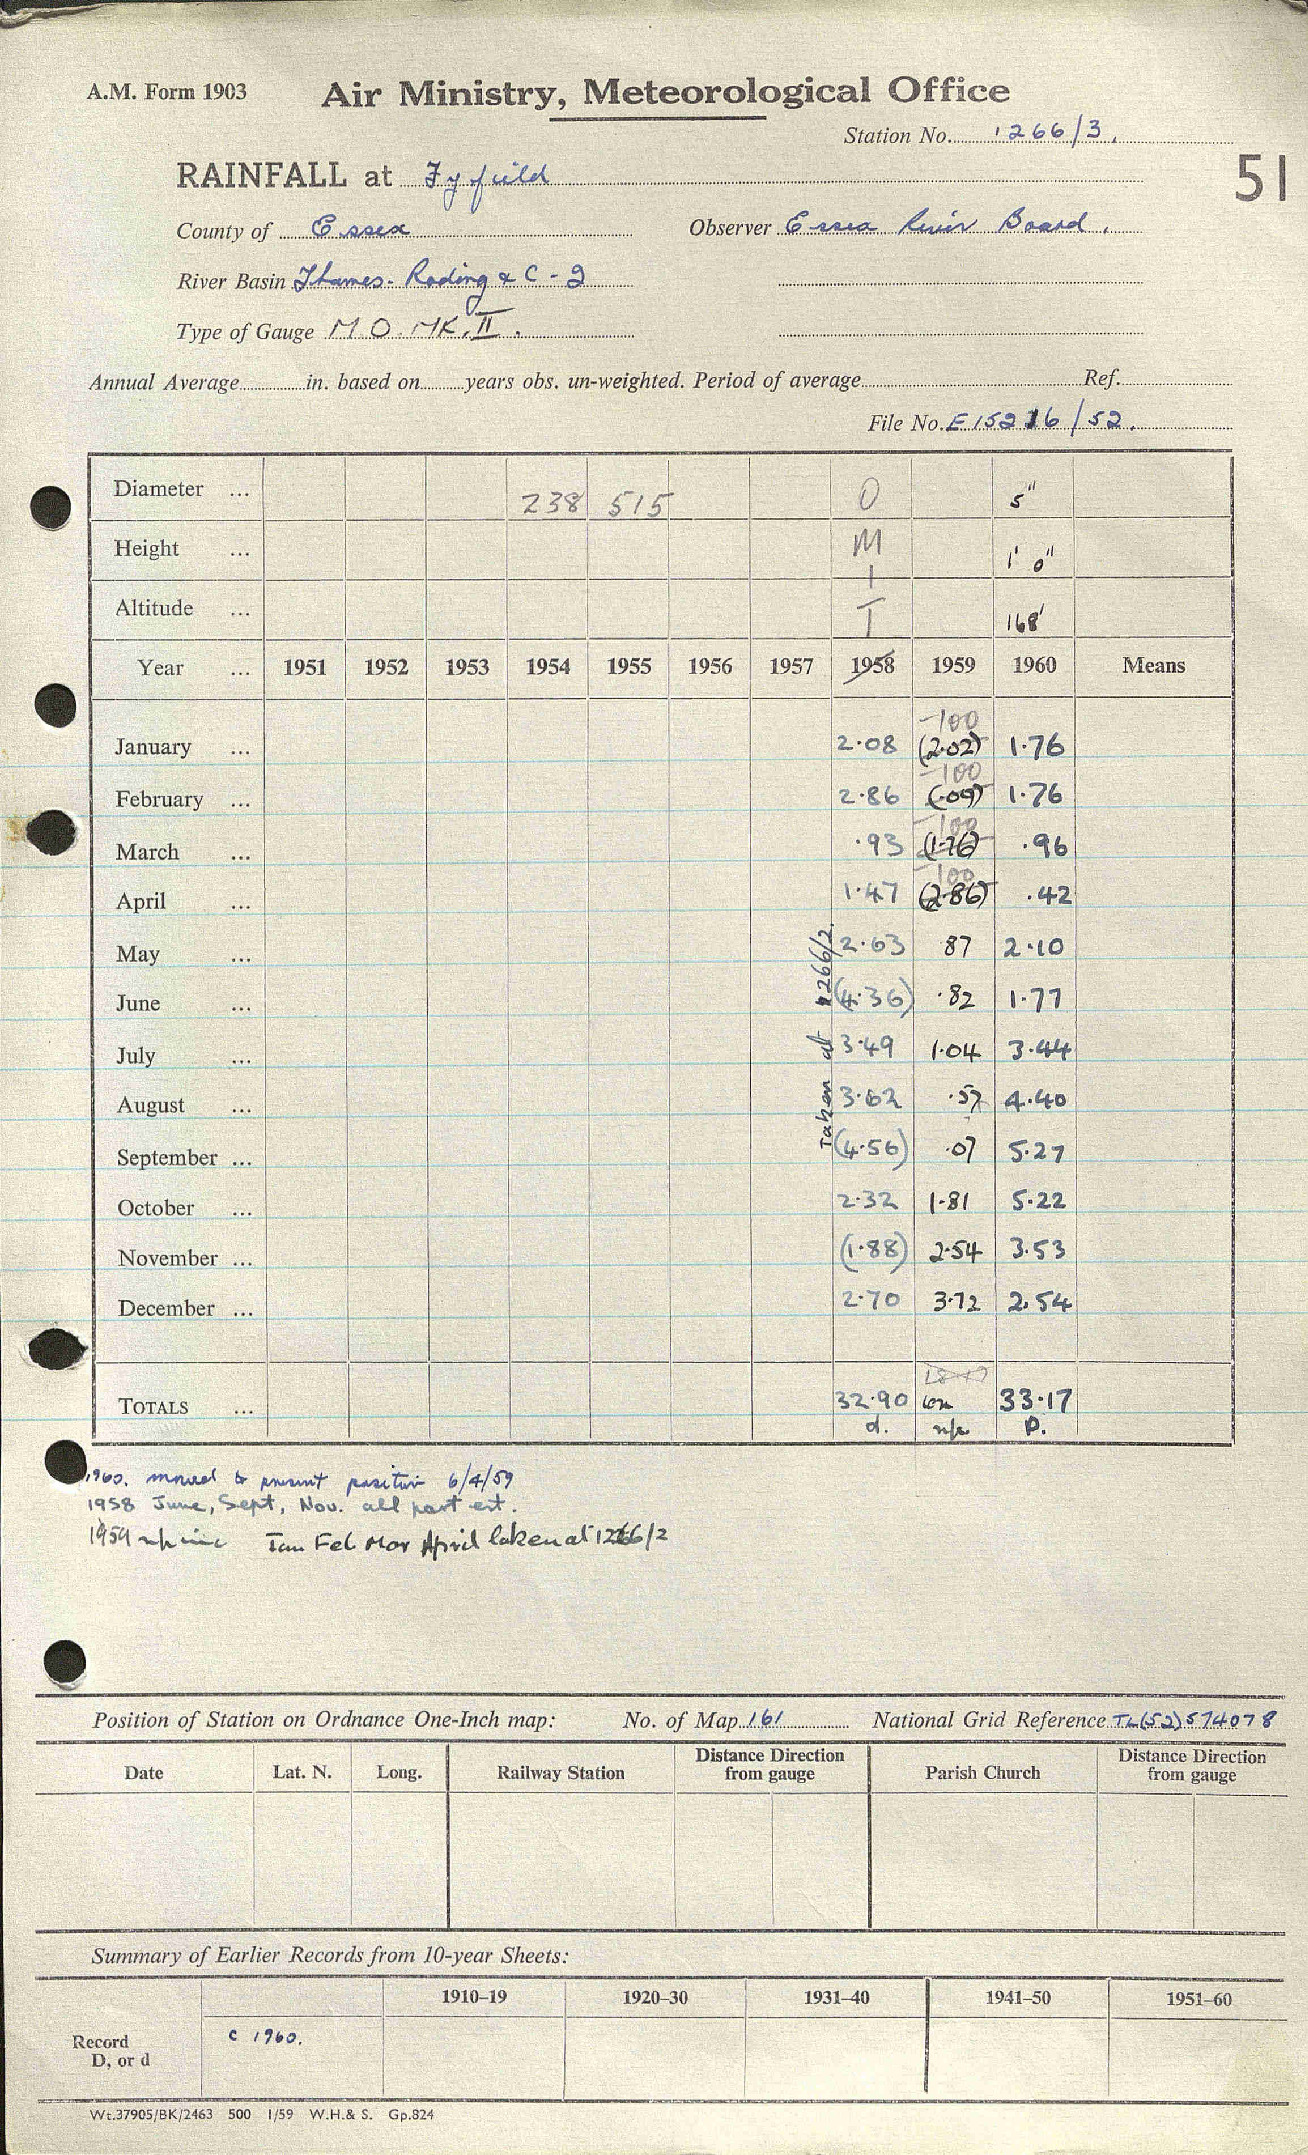 A.M. Form 1903 Air Ministry, Meteorological Office
Station No. 1266/3.
51
RAINFALL at Fyfield
County of Essex Observer Essex River Board.
River Basin Thames - Roding & C - 2
Type of Gauge M.O. MK, II.
Annual Average in. based on years obs. un-weighted. Period of average Ref.
File No. E15216/52.
Diameter ... 238 515 O 5"
Height ... M 1' 0"
Altitude ... I T 168'
Year ... 1951 1952 1953 1954 1955 1956 1957 1958 1959 1960 Means
-100
January ... 2.08 (2.02) 1.76
-100
February ... 2.86 (.09) 1.76
-100
March ... .93 (1.76) .96
-100
April ... 1.47 (2.86) .42
May ... 2.63 .87 2.10
June ... (4.36) .82 1.77
July ... 3.49 1.04 3.44
August ... 3.62 .57 4.40
September ... (4.56) .07 5.27
October ... 2.32 1.81 5.22
November ... (1.88) 2.54 3.53
December ... 2.70 3.72 2.54
Taken at 1266/2.
TOTALS ... 32.90 33.17
d. P.
1960. moved to present position 6/4/59
1958 June, Sept, Nov. all part est.
1959 Jan Feb Mar April taken at 1266/2
Position of Station on Ordnance One-Inch map: No. of Map 161 National Grid Reference TL(52)574078
Date Lat. N. Long. Railway Station Distance Direction from gauge Parish Church Distance Direction from gauge
Summary of Earlier Records from 10-year Sheets:
1910–19 1920–30 1931–40 1941–50 1951–60
Record D, or d c 1960.
Wt.37905/BK/2463 500 1/59 W.H.& S. Gp.824